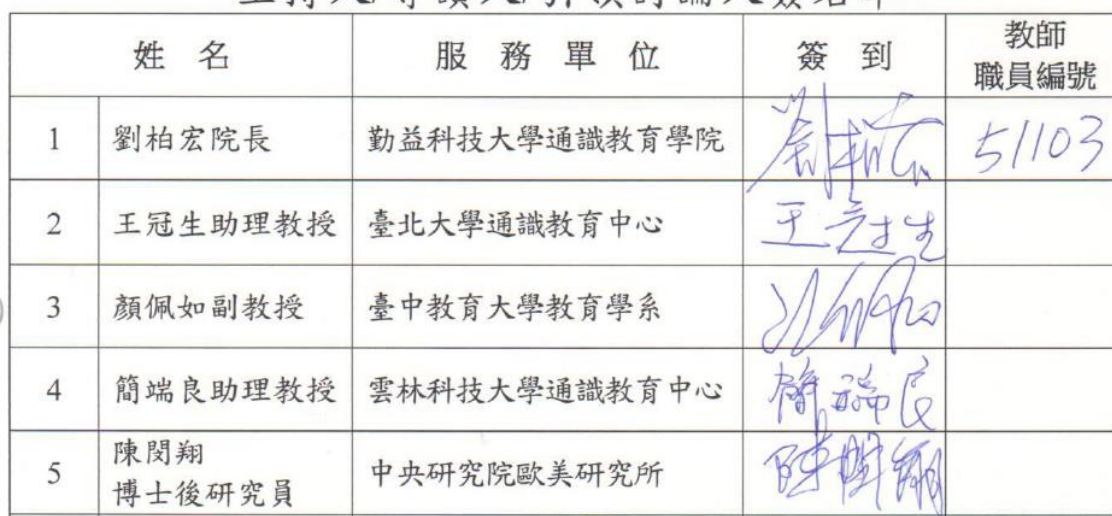 姓 名 服 務 單 位 簽 到 教師
職員編號
1 劉柏宏院長 勤益科技大學通識教育學院 劉柏宏 51103
2 王冠生助理教授 臺北大學通識教育中心 王冠生
3 顏佩如副教授 臺中教育大學教育學系
4 簡端良助理教授 雲林科技大學通識教育中心 簡端良
5 陳閔翔
博士後研究員 中央研究院歐美研究所 陳閔翔